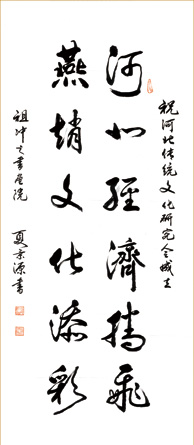 祝河北传统文化研究会成立
河北經濟騰飛
燕趙文化添彩
祖冲之書画院 夏京源書